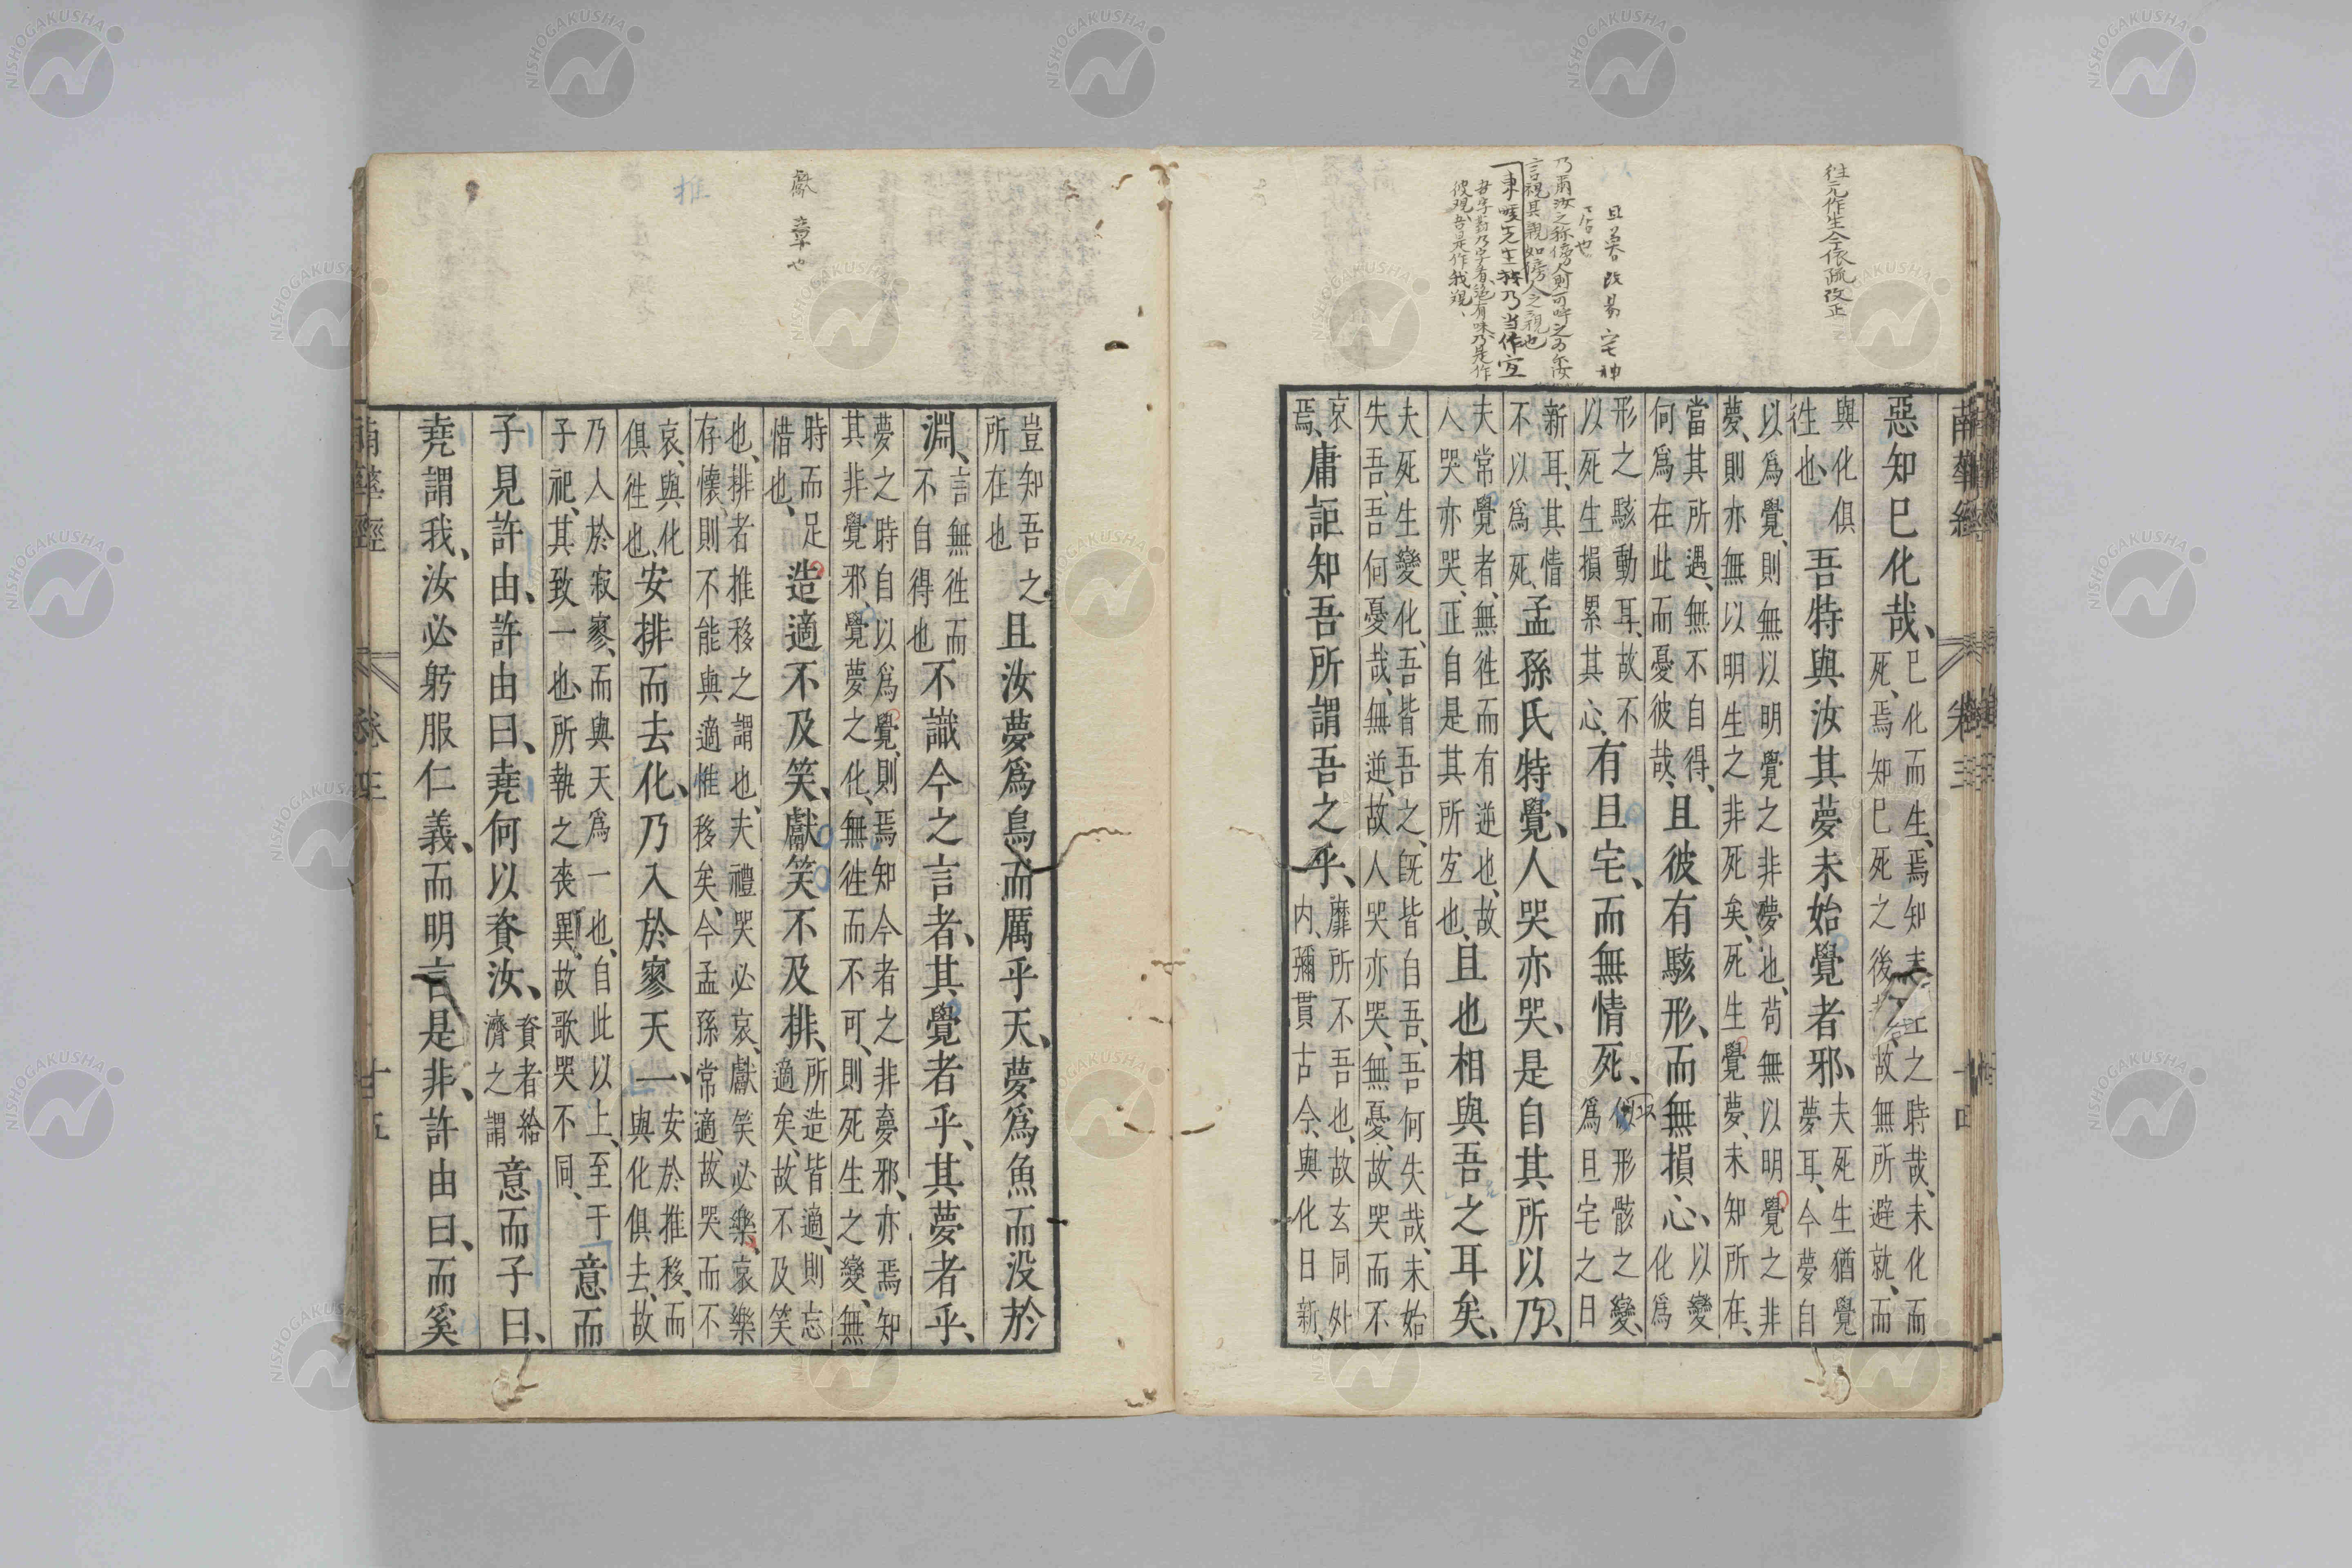 徃元作生今依疏改正
且暮改易宅神
居也
南華經 卷三
惡知巳化哉、巳化而生、焉知未生之時哉、未化而
死、焉知巳死之後哉、故無所避就、而
與化俱
徃也、吾特與汝其夢未始覺者邪、夫死生猶覺
夢耳、今夢自
以爲覺、則無以明覺之非夢也、苟無以明覺之非
夢、則亦無以明生之非死矣、死生覺夢、未知所在、
當其所遇、無不自得、
何爲在此而憂彼哉、且彼有駭形、而無損心、以變
化爲
形之駭動耳、故不
以死生損累其心、有且宅、而無情死、似形骸之變、
爲旦宅之日
新耳、其情
不以爲死、孟孫氏特覺、人哭亦哭、是自其所以乃、
夫常覺者、無徃而有逆也、故
人哭亦哭、正自是其所宜也、且也相與吾之耳矣、
夫死生變化、吾皆吾之、旣皆自吾、吾何失哉、未始
失吾、吾何憂哉、無逆、故人哭亦哭、無憂、故哭而不
哀
焉、庸詎知吾所謂吾之乎、靡所不吾也、故玄同外
内、彌貫古今、與化日新、
獻章也
推
豈知吾之
所在也
且汝夢爲鳥而厲乎天、夢爲魚而没於
淵、言無徃而
不自得也
不識今之言者、其覺者乎、其夢者乎、
夢之時自以爲覺、則焉知今者之非夢邪、亦焉知
其非覺邪、覺夢之化、無徃而不可、則死生之變、無
時而足
惜也、
造適不及笑、獻笑不及排、所造皆適、則忘
適矣、故不及笑
也、排者推移之謂也、夫禮哭必哀、獻笑必樂、哀樂
存懷、則不能與適惟移矣、今孟孫常適、故哭而不
哀、與化
俱徃也、安排而去化、乃入於寥天一、安於推移、而
與化俱去、故
乃入於寂寥、而與天爲一也、自此以上、至于
子祀、其致一也、所執之喪異、故歌哭不同、
意而
子見許由、許由曰、堯何以資汝、資者給
濟之謂
意而子曰、
堯謂我、汝必躬服仁義、而明言是非、許由曰、而奚
南華經 卷三 廿五